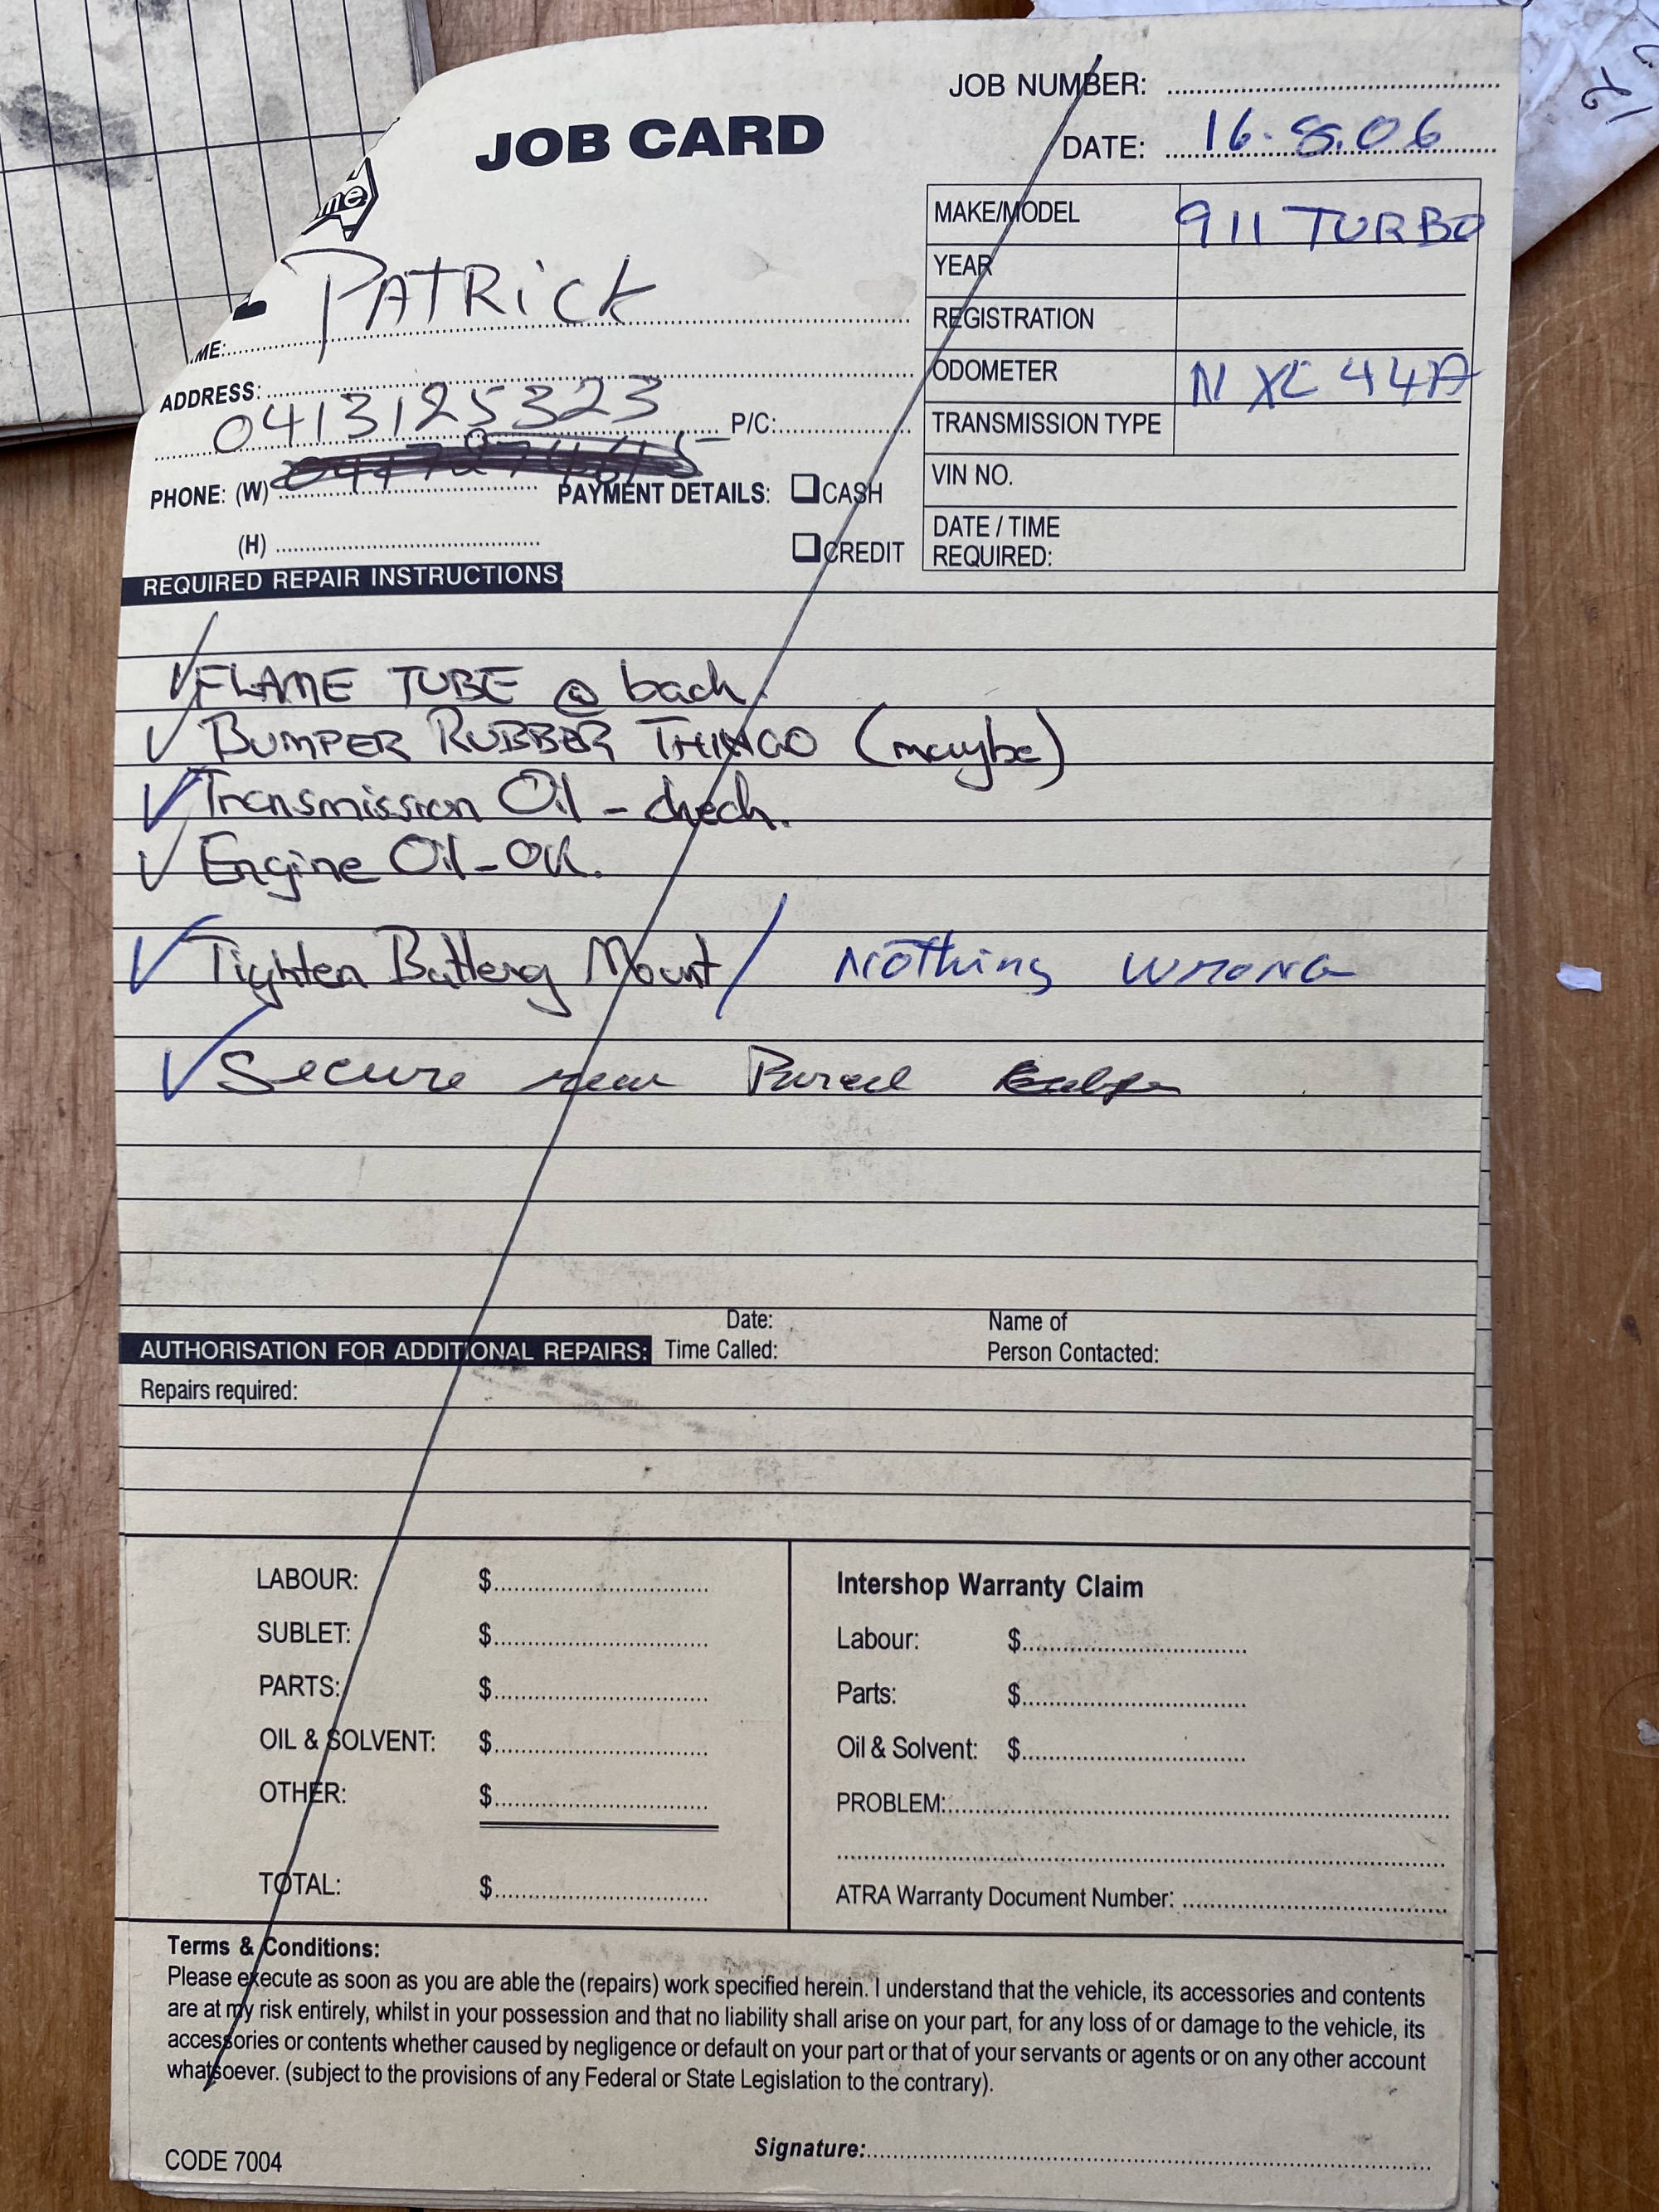 JOB NUMBER:
JOB CARD
DATE: 16.8.06
me
MAKE/MODEL 911 TURBO
YEAR
REGISTRATION
ODOMETER NXC 44A
TRANSMISSION TYPE
VIN NO.
DATE / TIME
REQUIRED:
PATRICK
ME:
ADDRESS:
0413125323 P/C:
PHONE: (W) PAYMENT DETAILS: CASH
(H) CREDIT
REQUIRED REPAIR INSTRUCTIONS
FLAME TUBE @ back.
BUMPER RUBBER THINGO (maybe)
Transmission Oil - check.
Engine Oil - OK.
Tighten Battery Mount / Nothing wrong
Secure rear Parcel
Date: Name of
AUTHORISATION FOR ADDITIONAL REPAIRS: Time Called: Person Contacted:
Repairs required:
LABOUR: $
SUBLET: $
PARTS: $
OIL & SOLVENT: $
OTHER: $
TOTAL: $
Intershop Warranty Claim
Labour: $
Parts: $
Oil & Solvent: $
PROBLEM:
ATRA Warranty Document Number:
Terms & Conditions:
Please execute as soon as you are able the (repairs) work specified herein. I understand that the vehicle, its accessories and contents
are at my risk entirely, whilst in your possession and that no liability shall arise on your part, for any loss of or damage to the vehicle, its
accessories or contents whether caused by negligence or default on your part or that of your servants or agents or on any other account
whatsoever. (subject to the provisions of any Federal or State Legislation to the contrary).
CODE 7004
Signature: